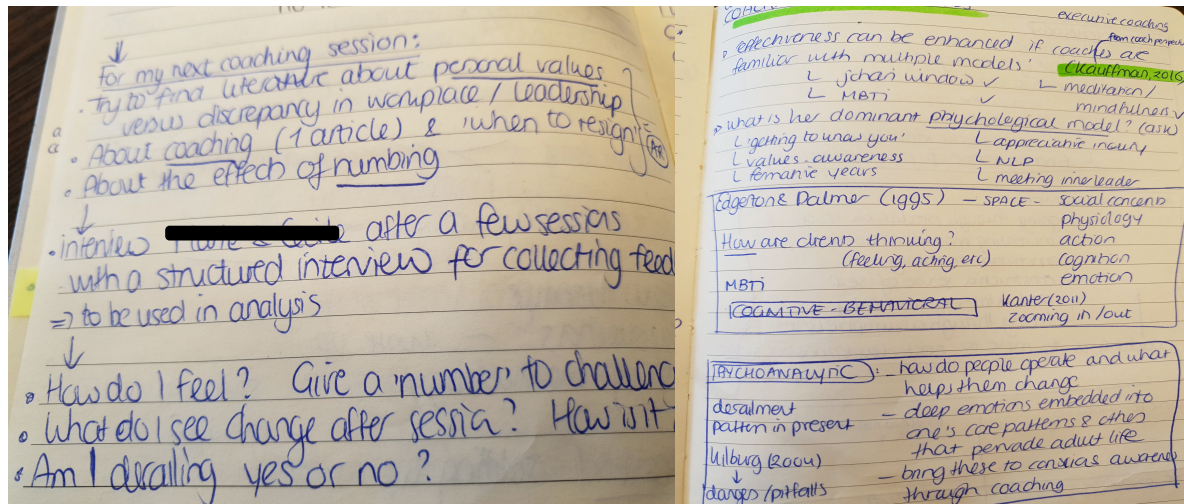 for my next coaching session:
• Try to find literature about personal values
versus discrepancy in workplace / leadership
• About coaching (1 article) & 'when to resign'
• About the effect of numbing
• interview after a few sessions
with a structured interview for collecting feed
=> to be used in analysis
• How do I feel? Give a 'number' to challenc
• What do I see change after session? How is it
• Am I derailing yes or no?
executive coaching
from coach perspec
• effectiveness can be enhanced if coaches are
familiar with multiple models' (Kauffman, 2016)
L johari window ✓ L meditation/
L MBTi ✓ mindfulness ✓
• what is her dominant phychological model? (ask)
L 'getting to know you' L appreciative inquiry
L values-awareness L NLP
L femanie years L meeting inner leader
Edgerton & Palmer (1995) – SPACE – social concerns
physiology
How are clients thriving? action
(feeling, acting, etc) cognition
emotion
MBTi
COGNITIVE-BEHAVIORAL Kanter (2011)
zooming in/out
PSYCHOANALYTIC: – how do people operate and what
helps them change
derailment – deep emotions embedded into
patten in present one's core patterns & others
that pervade adult life
Kilburg (2004) – bring these to conscious awarenes
↓ through coaching
dangers/pitfalls